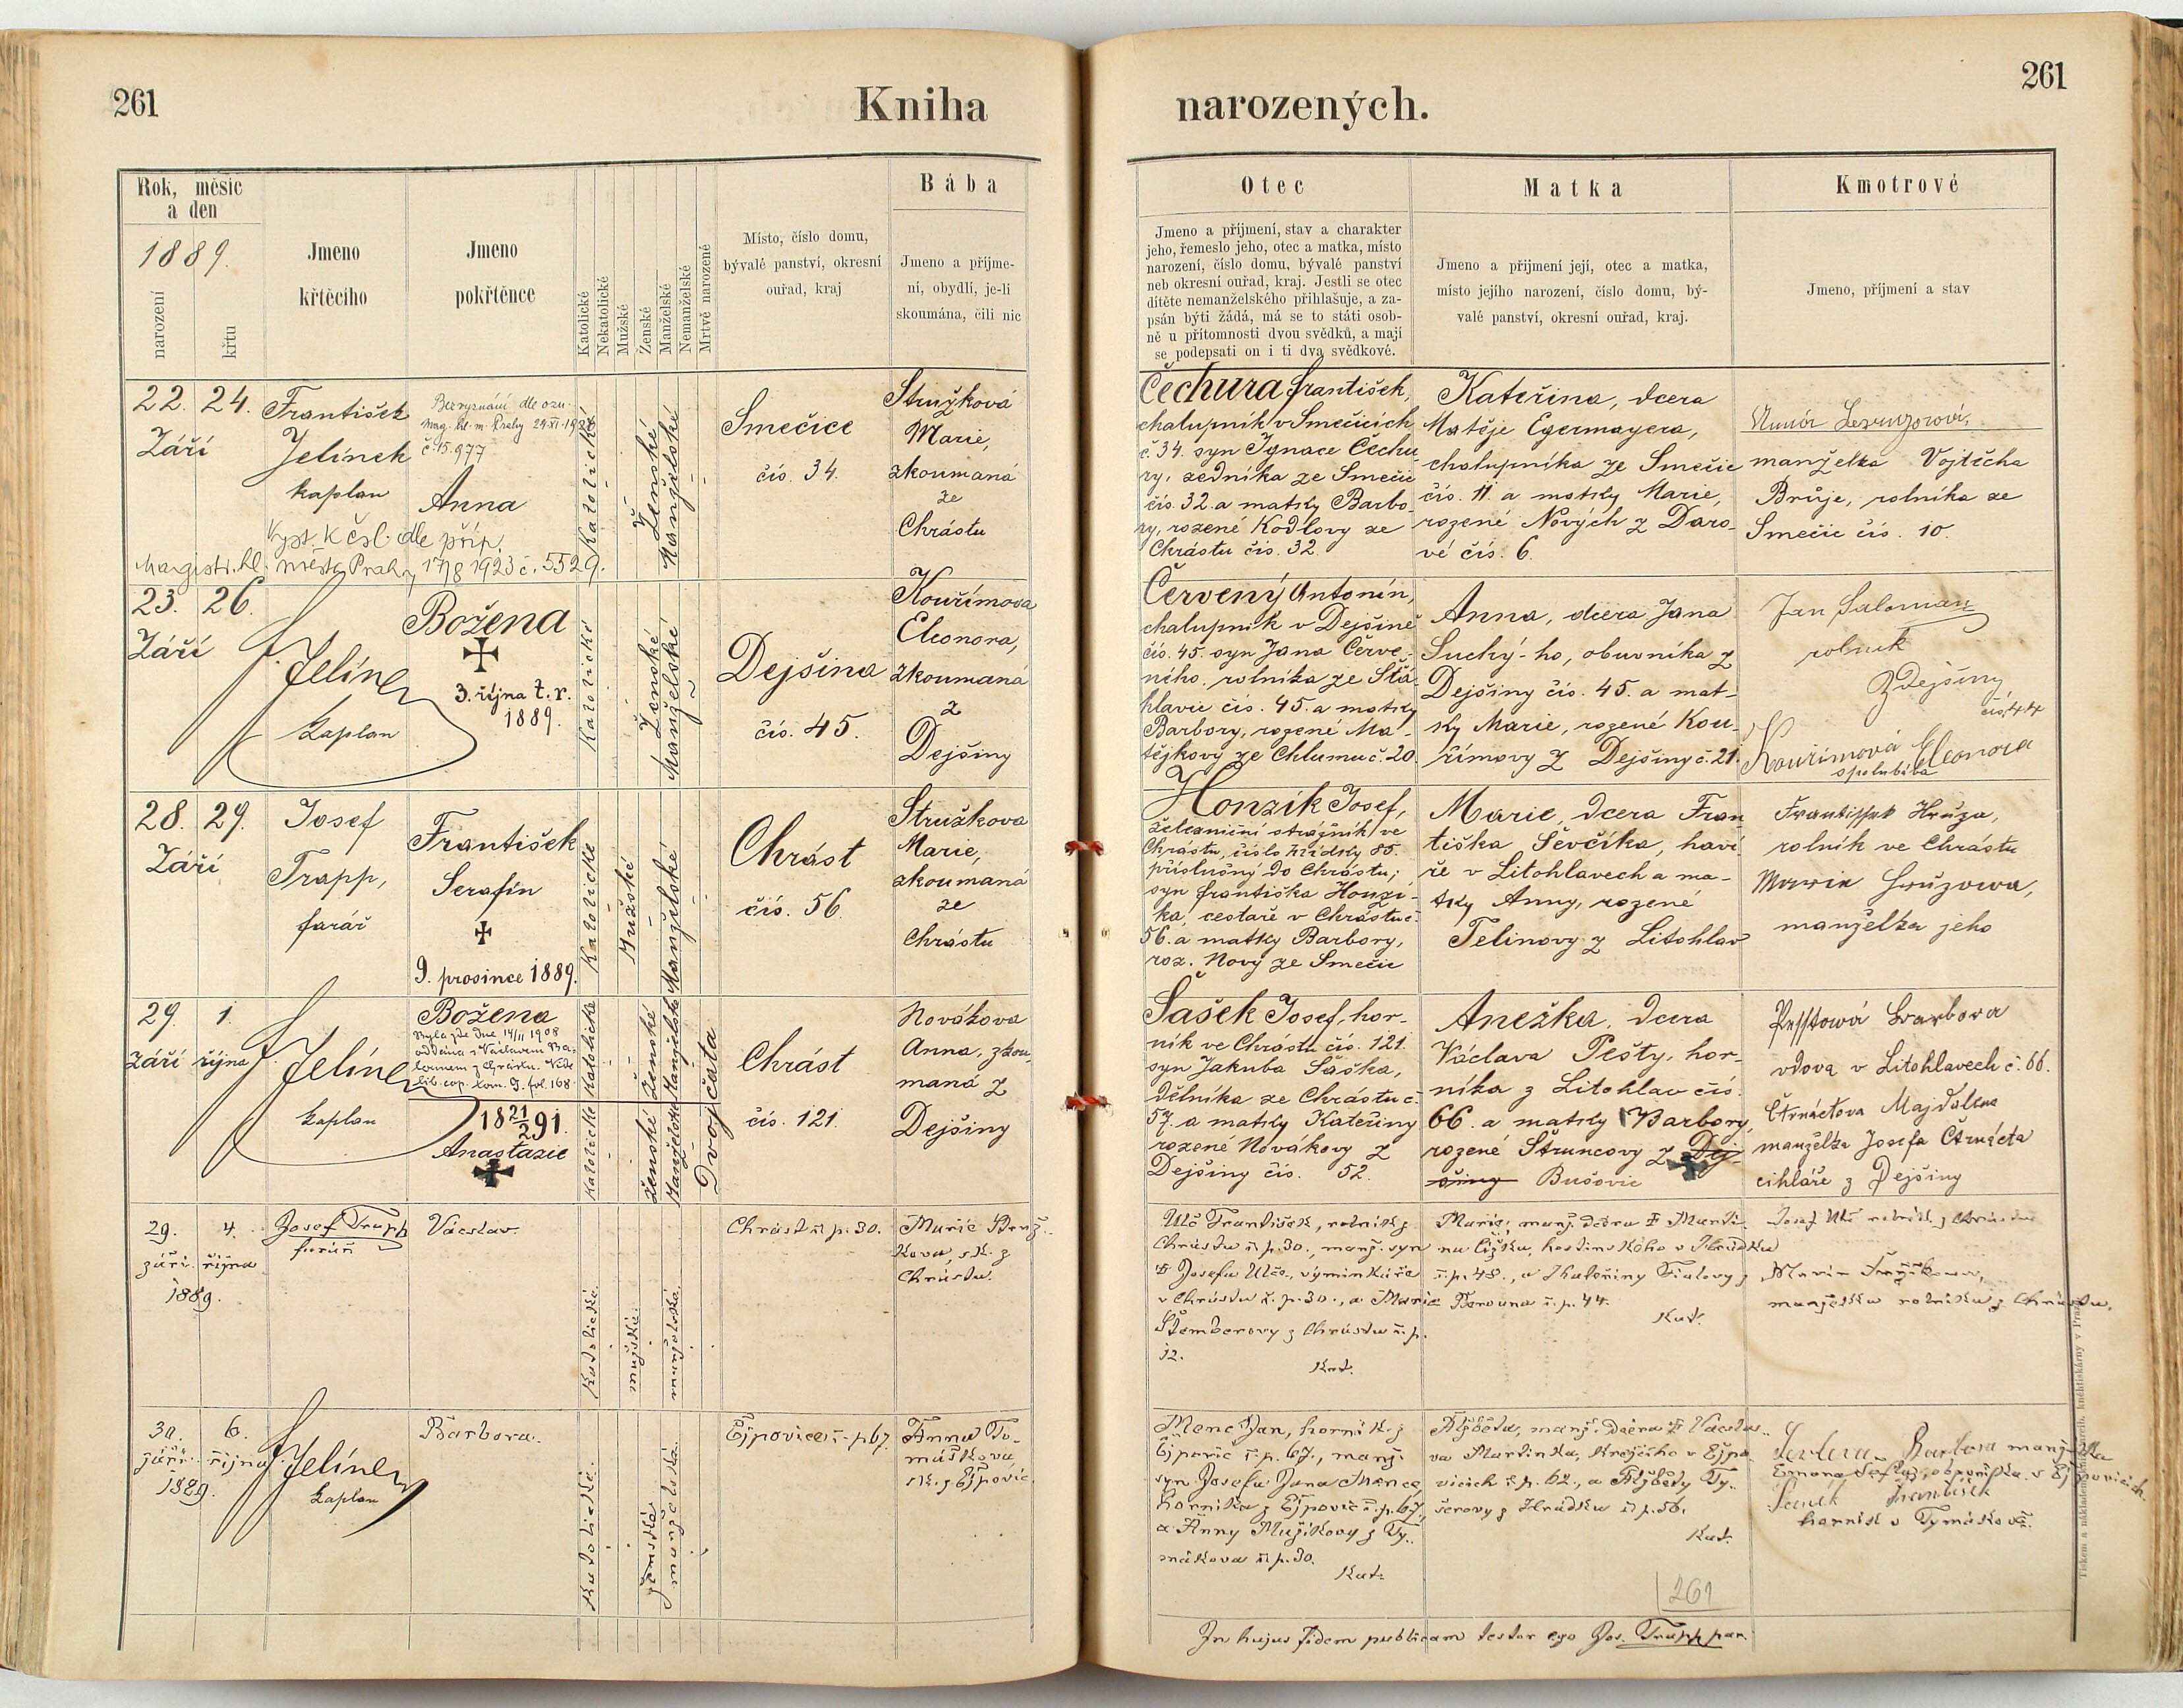 261
Kniha
narozených.
261
Rok, měsíc
a den
1889.
narození
křtu
Jmeno
křtěcího
Jmeno
pokřtěnce
Katolické
Nekatolické
Mužské
Ženské
Manželské
Nemanželské
Mrtvě narozené
Místo, číslo domu,
bývalé panství, okresní
ouřad, kraj
Bába
Jmeno a příjme-
ní, obydlí, je-li
skoumána, čili nic
Otec
Jmeno a příjmení, stav a charakter
jeho, řemeslo jeho, otec a matka, místo
narození, číslo domu, bývalé panství
neb okresní ouřad, kraj. Jestli se otec
dítěte nemanželského přihlašuje, a za-
psán býti žádá, má se to státi osob-
ně u přítomnosti dvou svědků, a mají
se podepsati on i ti dva svědkové.
Matka
Jmeno a přijmení její, otec a matka,
místo jejího narození, číslo domu, bý-
valé panství, okresní ouřad, kraj.
Kmotrové
Jmeno, příjmení a stav
22. 24.
Září
František
Jelínek
kaplan
Bez vyznání dle ozn.
mag. hl. m. Prahy
č. 15.977
Anna
Vyst. k čsl. dle příp.
Magistr. hl. města Prahy 17/8 1923 č. 5529.
Katolické
Ženské
Manželské
Smečice
čís. 34.
Stružková
Marie,
zkoumaná
ze
Chrástu
Čechura František,
chalupník v Smečicích
č. 34. syn Ignace Čechu-
ry, zedníka ze Smečic
čís. 32. a matky Barbo-
ry, rozené Kodlovy ze
Chrástu čís. 32.
Kateřina, dcera
Matěje Egermayera,
chalupníka ze Smečic
čís. 11. a matky Marie,
rozené Nových z Daro-
vé čís. 6.
manželka Vojtěcha
Brůje, rolníka ze
Smečic čís. 10.
23. 26.
Září
J. Jelínek
kaplan
Božena
3. října t. r.
1889.
Katolické
Ženské
Manželské
Dejšina
čís. 45.
Kouřímova
Eleonora,
zkoumaná
z
Dejšiny
Červený Antonín,
chalupník v Dejšině
čís. 45. syn Jana Červe-
ného, rolníka ze Stá-
hlavic čís. 45. a matky
Barbory, rozené Ma-
tějkovy ze Chlumu č. 20.
Anna, dcera Jana
Suchý-ho, obuvníka z
Dejšiny čís. 45. a mat-
ky Marie, rozené Kou-
římovy z Dejšiny č. 21.
Jan Saloman
rolník
z Dejšiny
čís. 44
Kouřimová Eleonora
spolubába
28. 29.
Září
Josef
Trapp,
farář
František
Serafín
9. prosince 1889.
Katolické
Mužské
Manželské
Chrást
čís. 56.
Stružkova
Marie,
zkoumaná
ze
Chrástu
Honzík Josef,
železniční strážník ve
Chrástu, číslo hlídky 85.
příslušný do Chrástu;
syn Františka Honzí-
ka, cestaře v Chrástu č.
56. a matky Barbory,
roz. Nový ze Smečic
Marie, dcera Fran-
tiška Ševčíka, haví-
ře v Litohlavech a ma-
tky Anny, rozené
Telinovy z Litohlav
Frantisstek Hruza,
rolník ve Chrástu
Marie Hrůzowa,
manželka jeho
29. 1.
září října
J. Jelínek
kaplan
Božena
Byla zde dne 14/11 1908
oddána s Václavem Ba-
lounem z Chrástu. Vide
lib. cop. tom. I. fol. 168
18 21/2 91.
Anastazie
Katolické Katolické
Ženské Ženské
Manželské Manželské
Dvojčata
Chrást
čís. 121.
Nováková
Anna, zkou-
maná z
Dejšiny
Šašek Josef, hor-
ník ve Chrástu čís. 121.
syn Jakuba Šaška,
dělníka ze Chrástu č.
57. a matky Kateřiny
rozené Novákovy z
Dejšiny čís. 52.
Anežka, dcera
Václava Pešty, hor-
níka z Litohlav čís.
66. a matky Barbory,
rozené Štruncovy z Dej-
šiny Bušovic
Pesstowá Barbora
vdova v Litohlavech č. 66.
Čtrnáctova Majdalena
manželka Josefa Čtrnácta
cihláře z Dejšiny
29. 4.
září října
1889.
Josef Trapp
farář
Václav.
Katolické.
mužské.
manželské.
Chrást č. p. 30.
Marie Struž-
kova, zk. z
Chrástu.
Ulč František, rolník z
Chrástu č. p. 30., manž. syn
Josefa Ulče, výminkáře
v Chrástu č. p. 30., a Marie
Štemberovy z Chrástu č. p.
12.
Kat.
Marie, manž. dcera Marti-
na Cižka, hostinského v Hrádku
č. p. 48., a Kateřiny Fialovy z
Berouna č. p. 44.
Kat.
Josef Ulč rolník z Chrástu
manželka rolníka z Chrástu.
30. 6.
září října
1889.
J. Jelínek
kaplan
Barbora.
Katolické.
ženské
manželské.
Ejpovice č. p. 67.
Anna To-
mášková
zk. z Ejpovic.
Menc Jan, horník z
Ejpovic č. p. 67., manž.
syn Josefa Jana Mence,
horníka z Ejpovic č. p. 67.,
a Anny Mužíkovy z Ty-
mákova č. p. 30.
Kat.
Alžběta, manž. dcera Václa-
va Martínka, krejčího v Ejpo-
vicích č. p. 62., a Alžběty Ty-
šerovy z Hrádku č. p. 56.
Kat.
Barbora manželka
horník v Tymákově.
261
In hujus fidem publicam testor ego Jos. Trapp par.